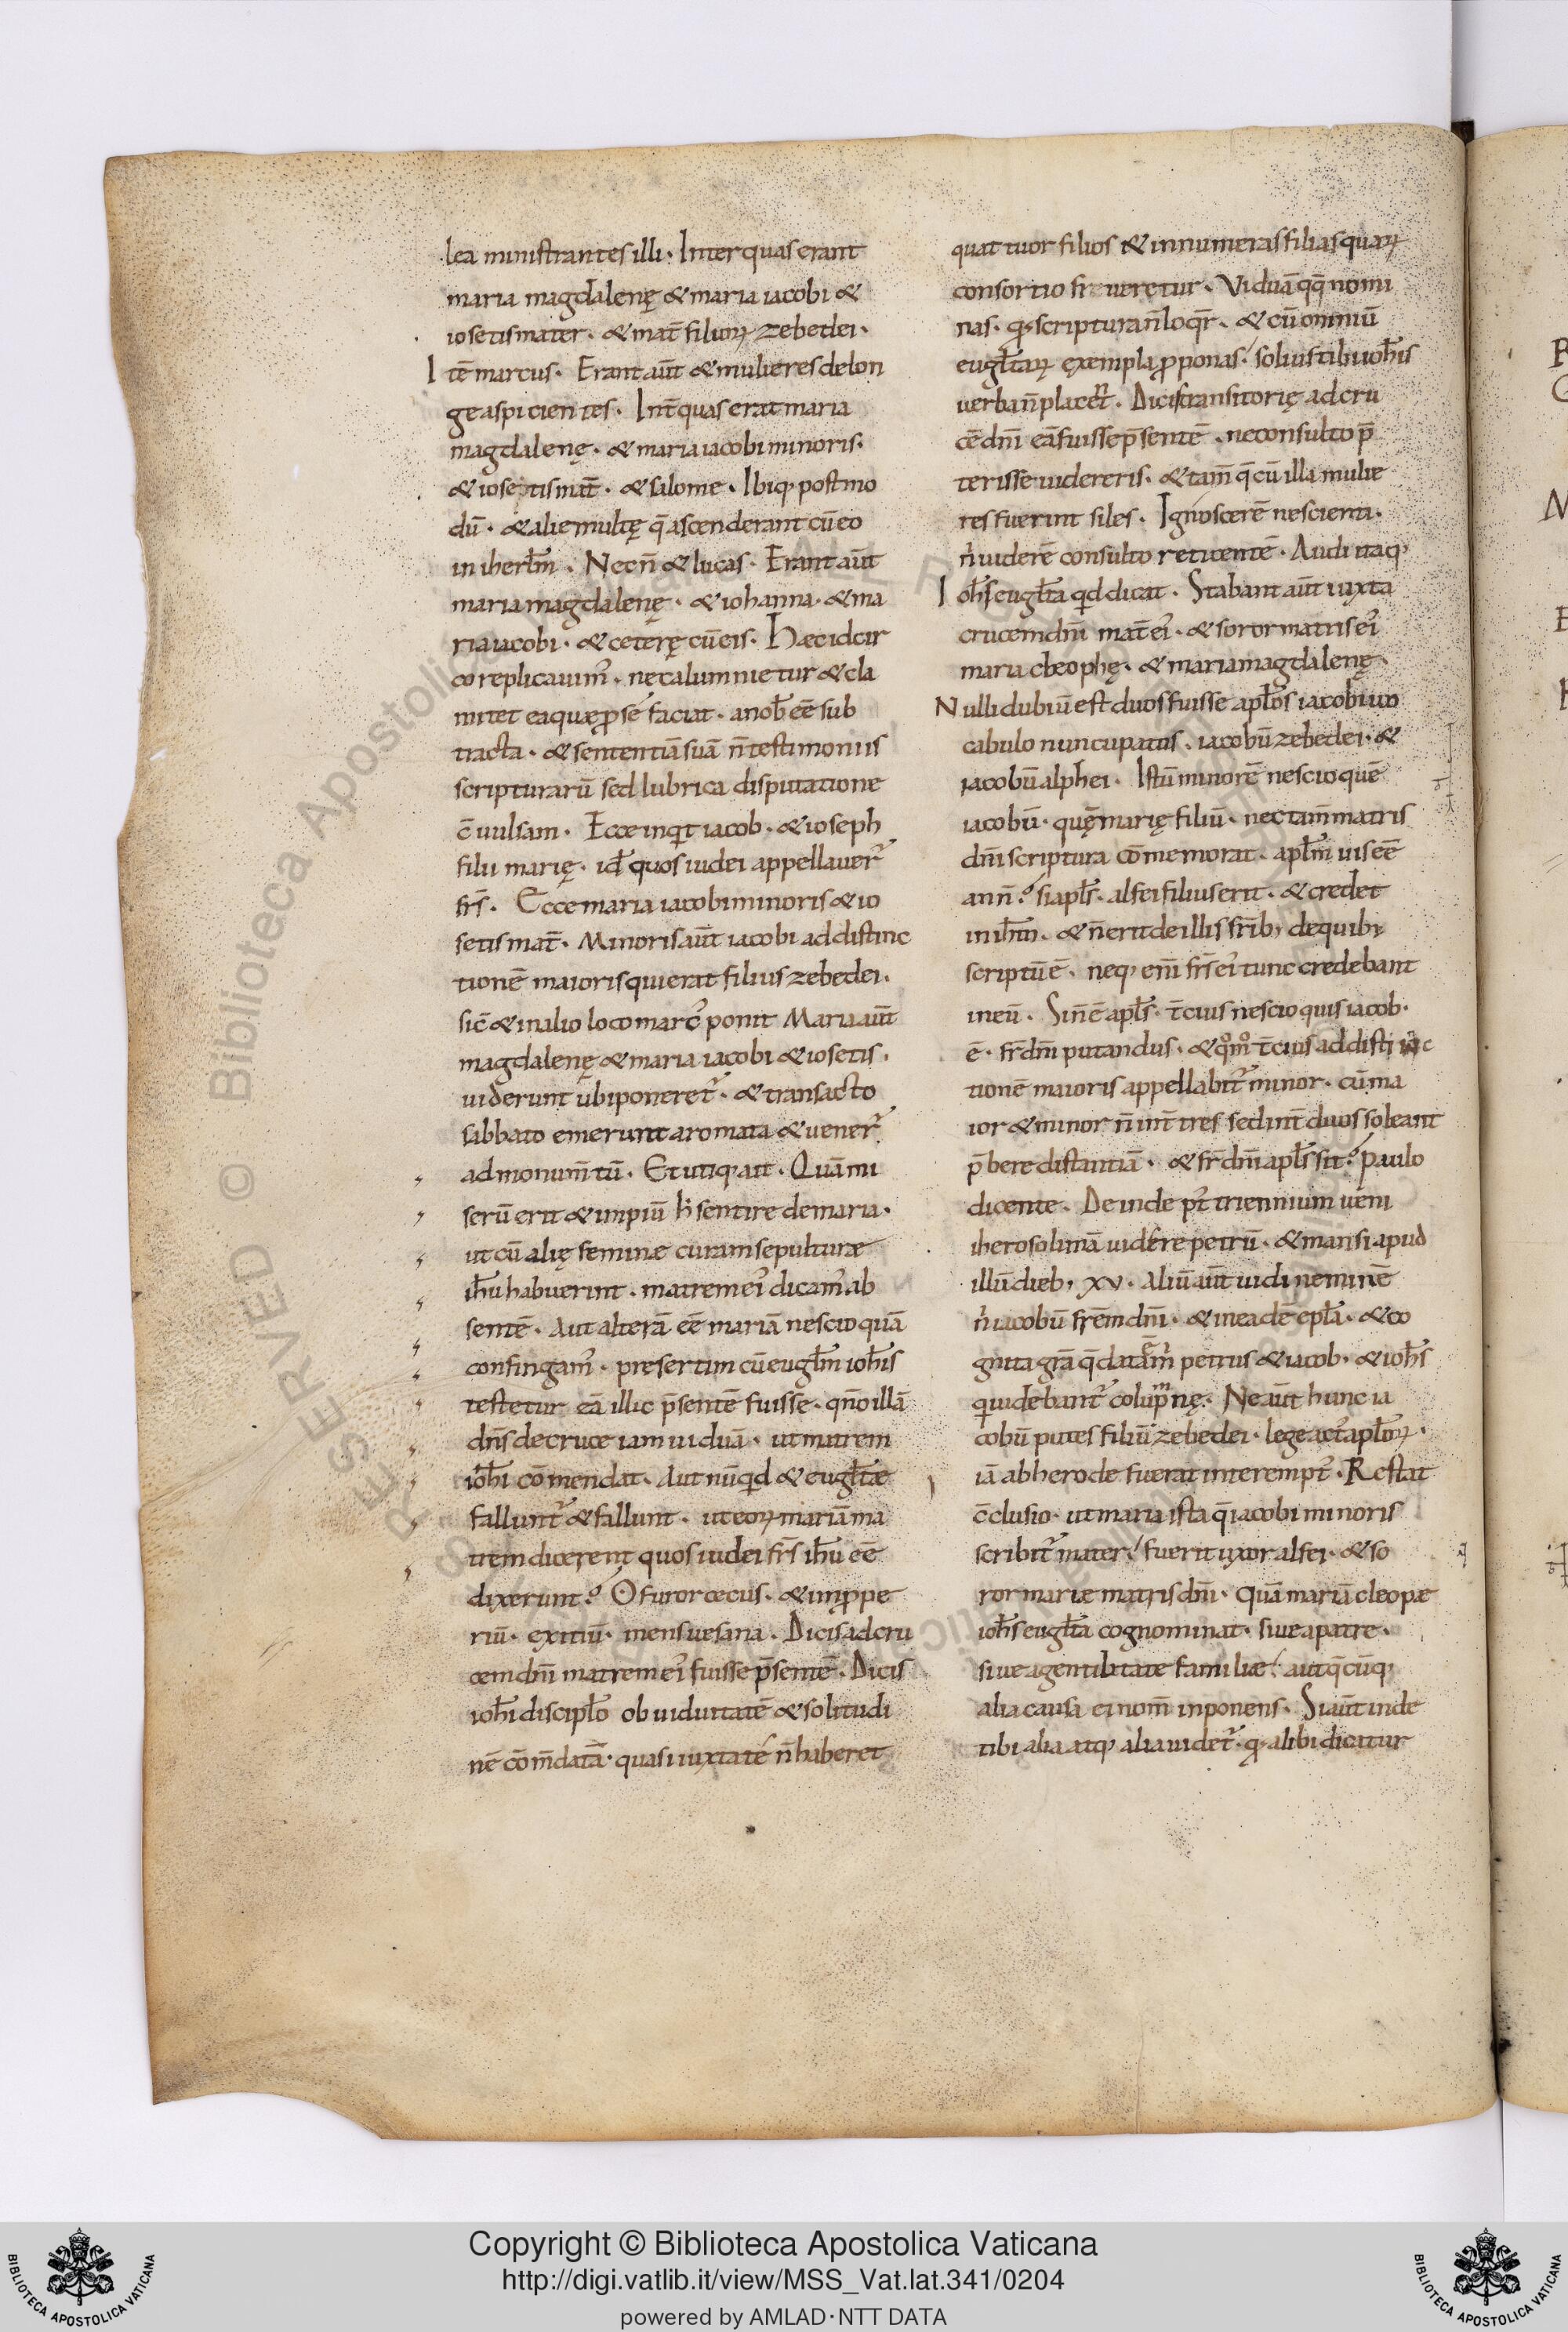 lea ministrantes illi. Inter quas erant
maria magdalenę & maria iacobi &
iosetis mater. & mat̄ filioꝝ zebedei.
Itē marcus. Erant aūt & mulieres de lon
ge aspicientes. Int̄ quas erat maria
magdalenę. & maria iacobi minoris.
& iosetis mat̄. & salome. Ibiq; postmo
dū. & alie multę q̄ ascenderant cū eo
in iherłm. Necn̄ & lucas. Erant aūt
maria magdalenę. & iohanna. & ma
ria iacobi. & ceterę cū eis. Hæc idcir
co replicauim᾽. ne calumnietur & cla
mitet ea quæ ꝓ se faciat. a nob̄ eē sub
tracta. & sententiā suā n̄ testimoniis
scripturarū sed lubrica disputatione
c̄uulsam. Ecce inqt iacob. & ioseph
filii marię. id̄ quos iudei appellauer᾽
frs̄. Ecce maria iacobi minoris & io
setis mat̄. Minoris aūt iacobi ad distinc
tionē maioris qui erat filius zebedei.
sic̄ & in alio loco marc᾽ ponit Maria aūt
magdalenę & maria iacobi & iosetis.
uiderunt ubi poneret᾽. & transacto
sabbato emerunt aromata & uener᾽
ad monum̄tū. Et utiq; ait. Quā mi
serū erit & impiū h̄ sentire de maria.
ut cū alię feminæ curam sepulturæ
ih̄u habuerint. matrem ei᾽ dicam᾽ ab
sentē. Aut alterā eē mariā nescio quā
confingam᾽. presertim cū eugłm ioh̄is
testetur eā illic p̄sentē fuisse. qn̄o illā
dn̄s de cruce iam uiduā. ut matrem
ioh̄i cōmendat. Aut nūqd & eugłtæ
fallunt᾽ & fallunt. ut eoꝝ mariā ma
trem dicerent quos iudei frs̄ ih̄u eē
dixerunt? O furor cæcus. & in ꝓpe
riū. exitiū. mens uesana. Dicis ad cru
cem dn̄i matrem ei᾽ fuisse p̄sentē. Dicis
ioh̄i discipło ob uiduitatē & solitudi
nē com̄datā. quasi iuxta te n̄ haberet
quattuor filios & innumeras filias quaꝝ
consortio frueretur. Viduā qq̄ nomi
nas. qd scriptura n̄ loqr̄. & cū omniū
eugłtaꝝ exempla ꝓponas. solius tibi ioh̄is
uerba n̄ placent. Dicis transitorię ad cru
cē dn̄i eā fuisse p̄sentē. ne consulto p̄
terisse uidereris. & tam̄ q̄ cū illa mulie
res fuerint siles. Ignoscerē nescienti.
n̄ uiderē consulto reticentē. Audi itaq;
Ioh̄s eugłta qd dicat. Stabant aūt iuxta
crucem dn̄i mat̄ ei᾽. & soror matris ei᾽
maria cleophę. & maria magdalenę.
Nulli dubiū est duos fuisse apłos iacobi uo
cabulo nuncupatus. iacobū zebedei. &
iacobū alphei. Istū minorē nescio quē
iacobū. quē marię filiū. nec tam̄ matris
dn̄i scriptura cōmemorat. apłm uis eē
an n̄? si apłs. alfei filius erit. & credet
in ih̄m. & n̄ erit de illis fr̄ib; de quib;
scriptū ē. neq; em̄ frs̄ ei᾽ tunc credebant
in eū. Sin̄ ē apłs. t̄cius nescio quis iacob.
ē. fr̄ dn̄i putandus. & qm̊ t̄cius ad distinc
tionē maioris appellabit᾽ minor. cū ma
ior & minor n̄ int̄ tres sed int̄ duos soleant
p̄bere distantiā. & fr̄ dn̄i apłs sit? Paulo
dicente. Deinde p᾽t triennium ueni
iherosolimā uidere petrū. & mansi apud
illū dieb; xv. Aliū aūt uidi neminē
n̄ iacobū frēm dn̄i. & in eadē epła. & co
gnita grā q̄ data ē m̄ petrus & iacob, & ioh̄s
q uidebant᾽ columnę. Ne aūt hunc ia
cobū putes filiū zebedei. lege act᾽ apłoꝝ.
iā ab herode fuerat interempt᾽. Restat
c̄clusio. ut maria ista q̄ iacobi minoris
scribit᾽ mater. fuerit uxor alfei. & so
ror mariæ matris dn̄i. quā mariā cleopæ
ioh̄s eugłta cognominat. siue a patre.
siue a gentilitate familiæ. aut q̄cūq;
alia causa ei nom̄ inponens. Si aūt inde
tibi alia atq; alia uidet᾽. qd alibi dicatur
Copyright © Biblioteca Apostolica Vaticana
http://digi.vatlib.it/view/MSS_Vat.lat.341/0204
powered by AMLAD·NTT DATA
BIBLIOTECA APOSTOLICA VATICANA
BIBLIOTECA APOSTOLICA VATICANA